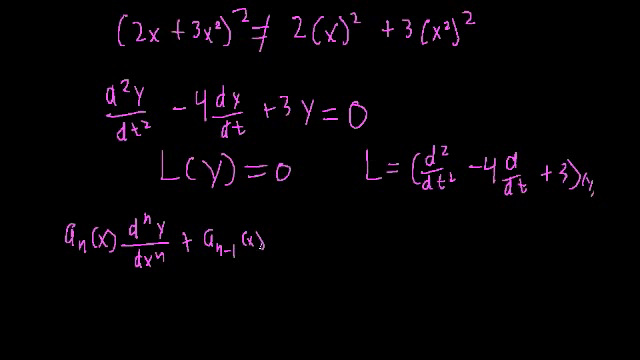 (2x + 3x²)² ≠ 2(x)² + 3(x²)²
d²y/dt² - 4 dy/dt + 3y = 0
L(y) = 0    L = (d²/dt² - 4 d/dt + 3)(y)
aₙ(x) dⁿy/dxⁿ + aₙ₋₁(x)